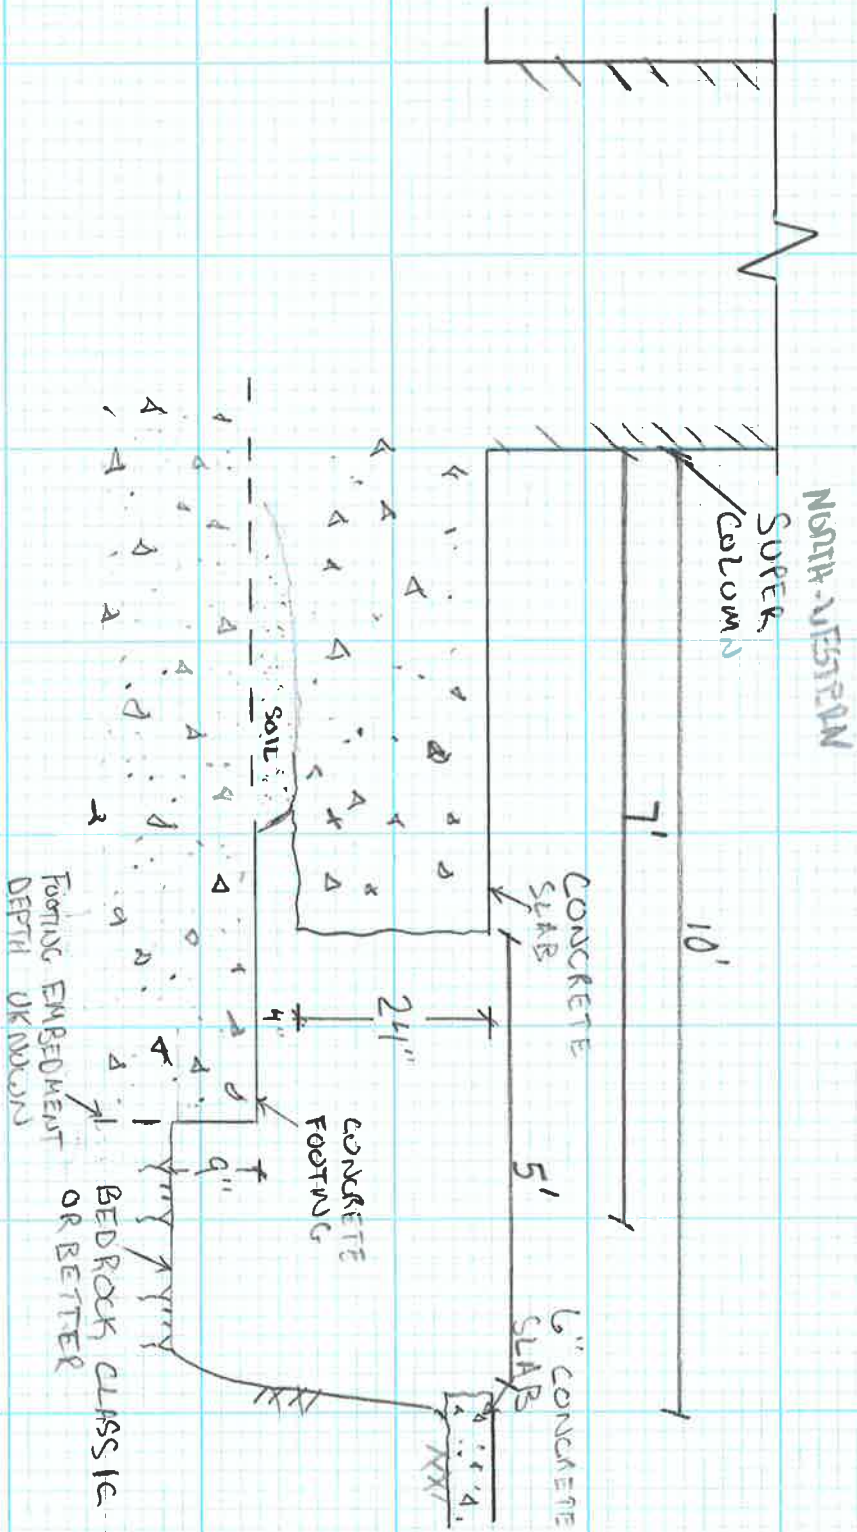 NORTH-WESTERN
SUPER
COLUMN
10'
7'
CONCRETE
SLAB
5'
6" CONCRETE
SLAB
24"
4"
SOIL
CONCRETE
FOOTING
9"
FOOTING EMBEDMENT
DEPTH UKNOWN
BEDROCK CLASS 1C
OR BETTER